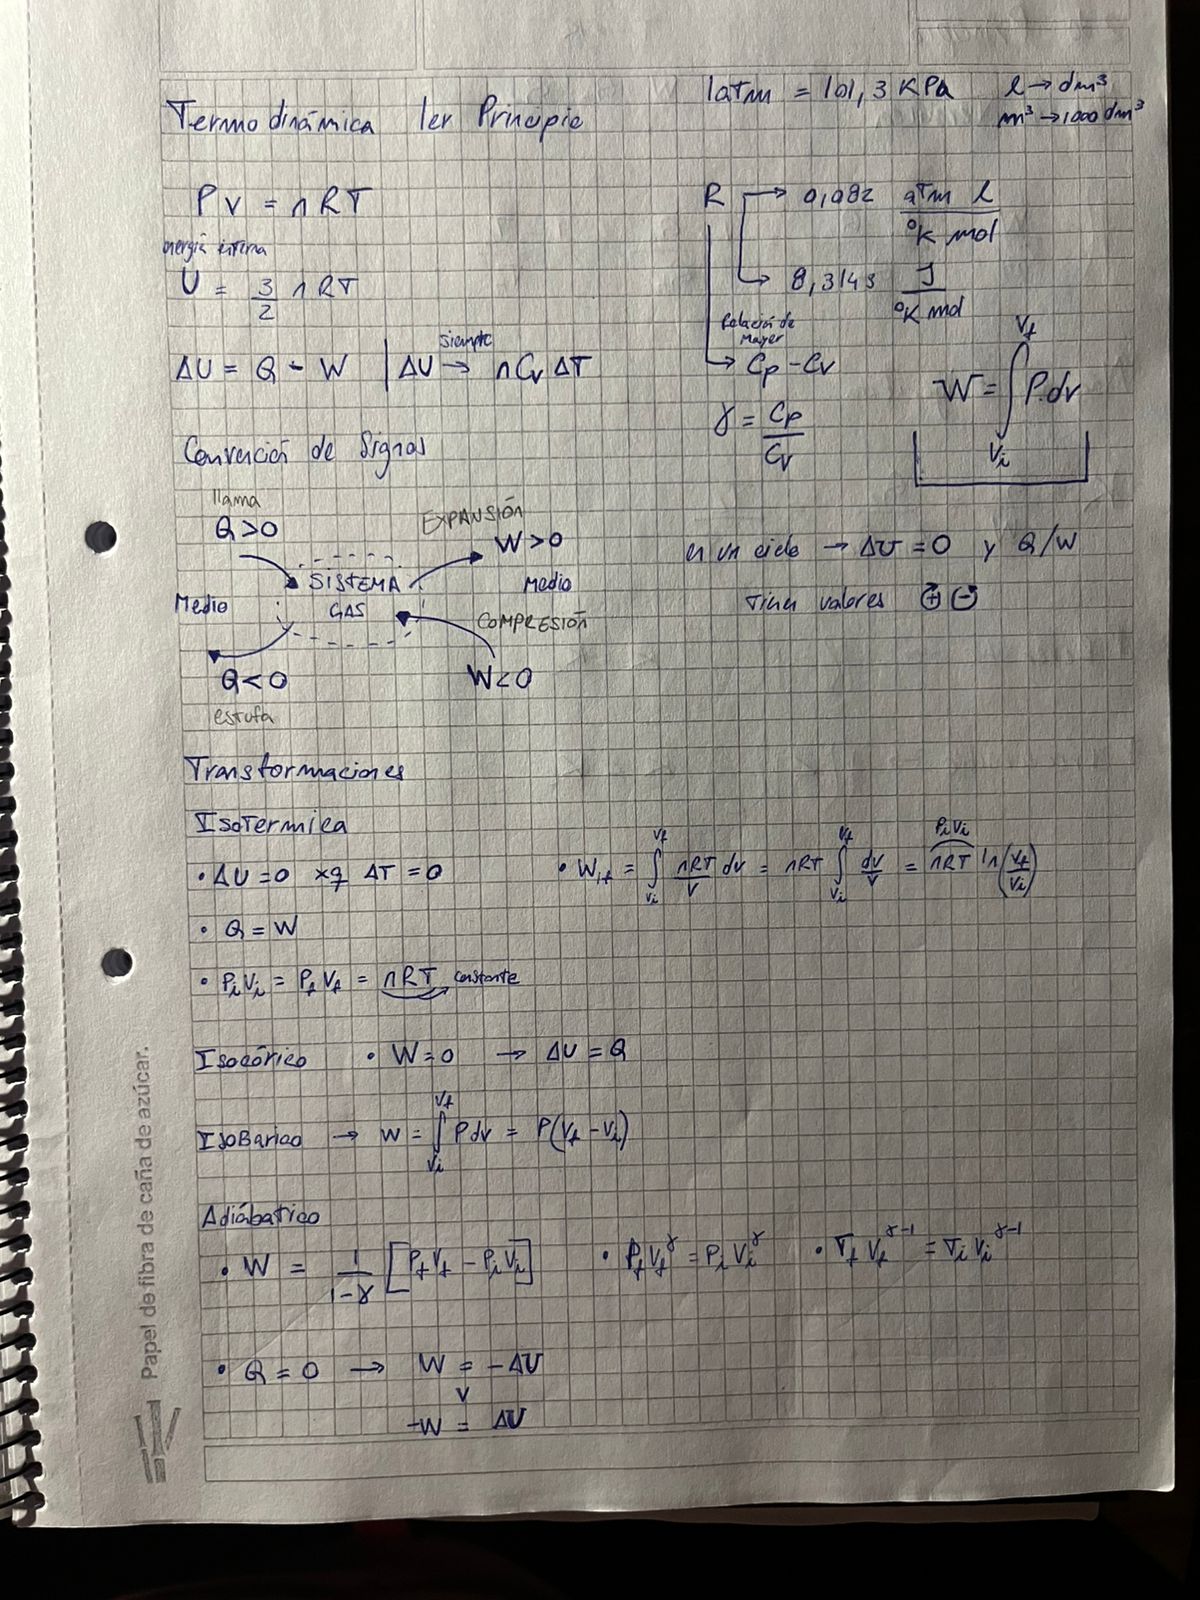 Termodinámica 1er Principio
1atm = 101,3 KPa
l → dm³
m³ → 1000 dm³
PV = nRT
energía interna
U = 3/2 nRT
ΔU = Q - W | ΔU siempre → nCv ΔT
R → 0,082 atm l / °K mol
→ 8,3143 J / °K mol
Relación de Mayer
→ Cp - Cv
γ = Cp / Cv
W = ∫ Vi Vf P.dv
Convención de Signos
llama
Q>0
EXPANSIÓN
W>0
SISTEMA
GAS
Medio
Medio
COMPRESIÓN
Q<0
W<0
estufa
en un ciclo → ΔU = 0 y Q/W
Tienen valores ⊕ ⊖
Transformaciones
Isotermica
• ΔU = 0 xq ΔT = 0
• Wif = ∫ Vi Vf nRT/V dv = nRT ∫ Vi Vf dv/V = nRT ln(Vf/Vi)
PiVi
• Q = W
• PiVi = PfVf = nRT → constante
Isocórico • W = 0 → ΔU = Q
IsoBarico → W = ∫ Vi Vf Pdv = P(Vf - Vi)
Adiábatico
• W = 1/1-γ [PfVf - PiVi] • PfVf^γ = PiVi^γ • TfVf^γ-1 = TiVi^γ-1
• Q = 0 → W = -ΔU
v
-W = ΔU
Papel de fibra de caña de azúcar.